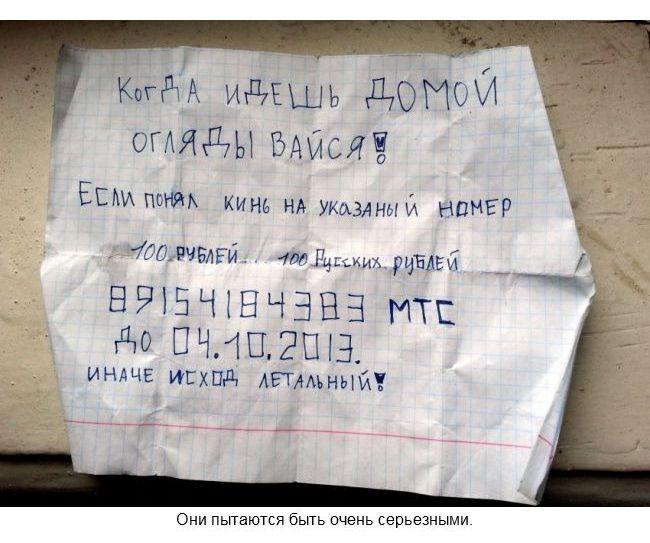 Когда идешь домой
огляды вайся!
Если понял кинь на указаный номер
100 рублей... 100 Русских рублей
89154184383 МТС
До 04.10.2013.
иначе исход летальный!
Они пытаются быть очень серьезными.